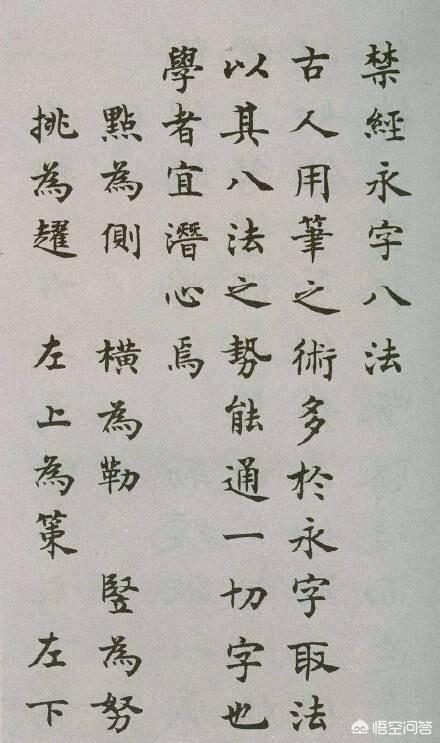 禁經永字八法
古人用筆之術多於永字取法
以其八法之勢能通一切字也
學者宜潛心焉
點為側 橫為勒 竪為努
挑為趯 左上為策 左下
悟空问答